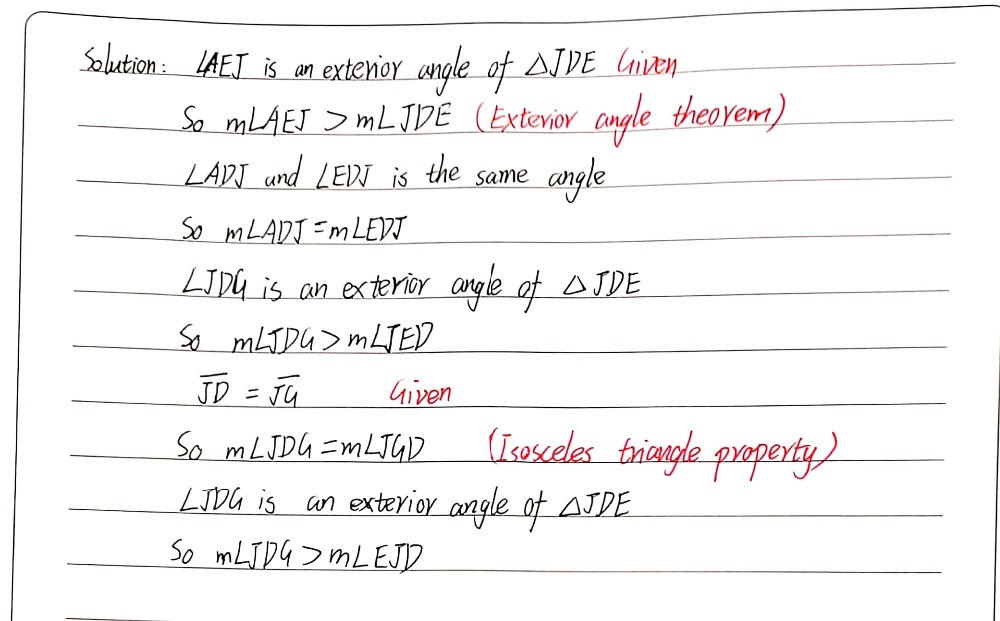 Solution: ∠AEJ is an exterior angle of △JDE Given
So m∠AEJ > m∠JDE (Exterior angle theorem)
∠ADJ and ∠EDJ is the same angle
So m∠ADJ = m∠EDJ
∠JDG is an exterior angle of △JDE
So m∠JDG > m∠JED
J̅D̅ = J̅G̅ Given
So m∠JDG = m∠JGD (Isosceles triangle property)
∠JDG is an exterior angle of △JDE
So m∠JDG > m∠EJD